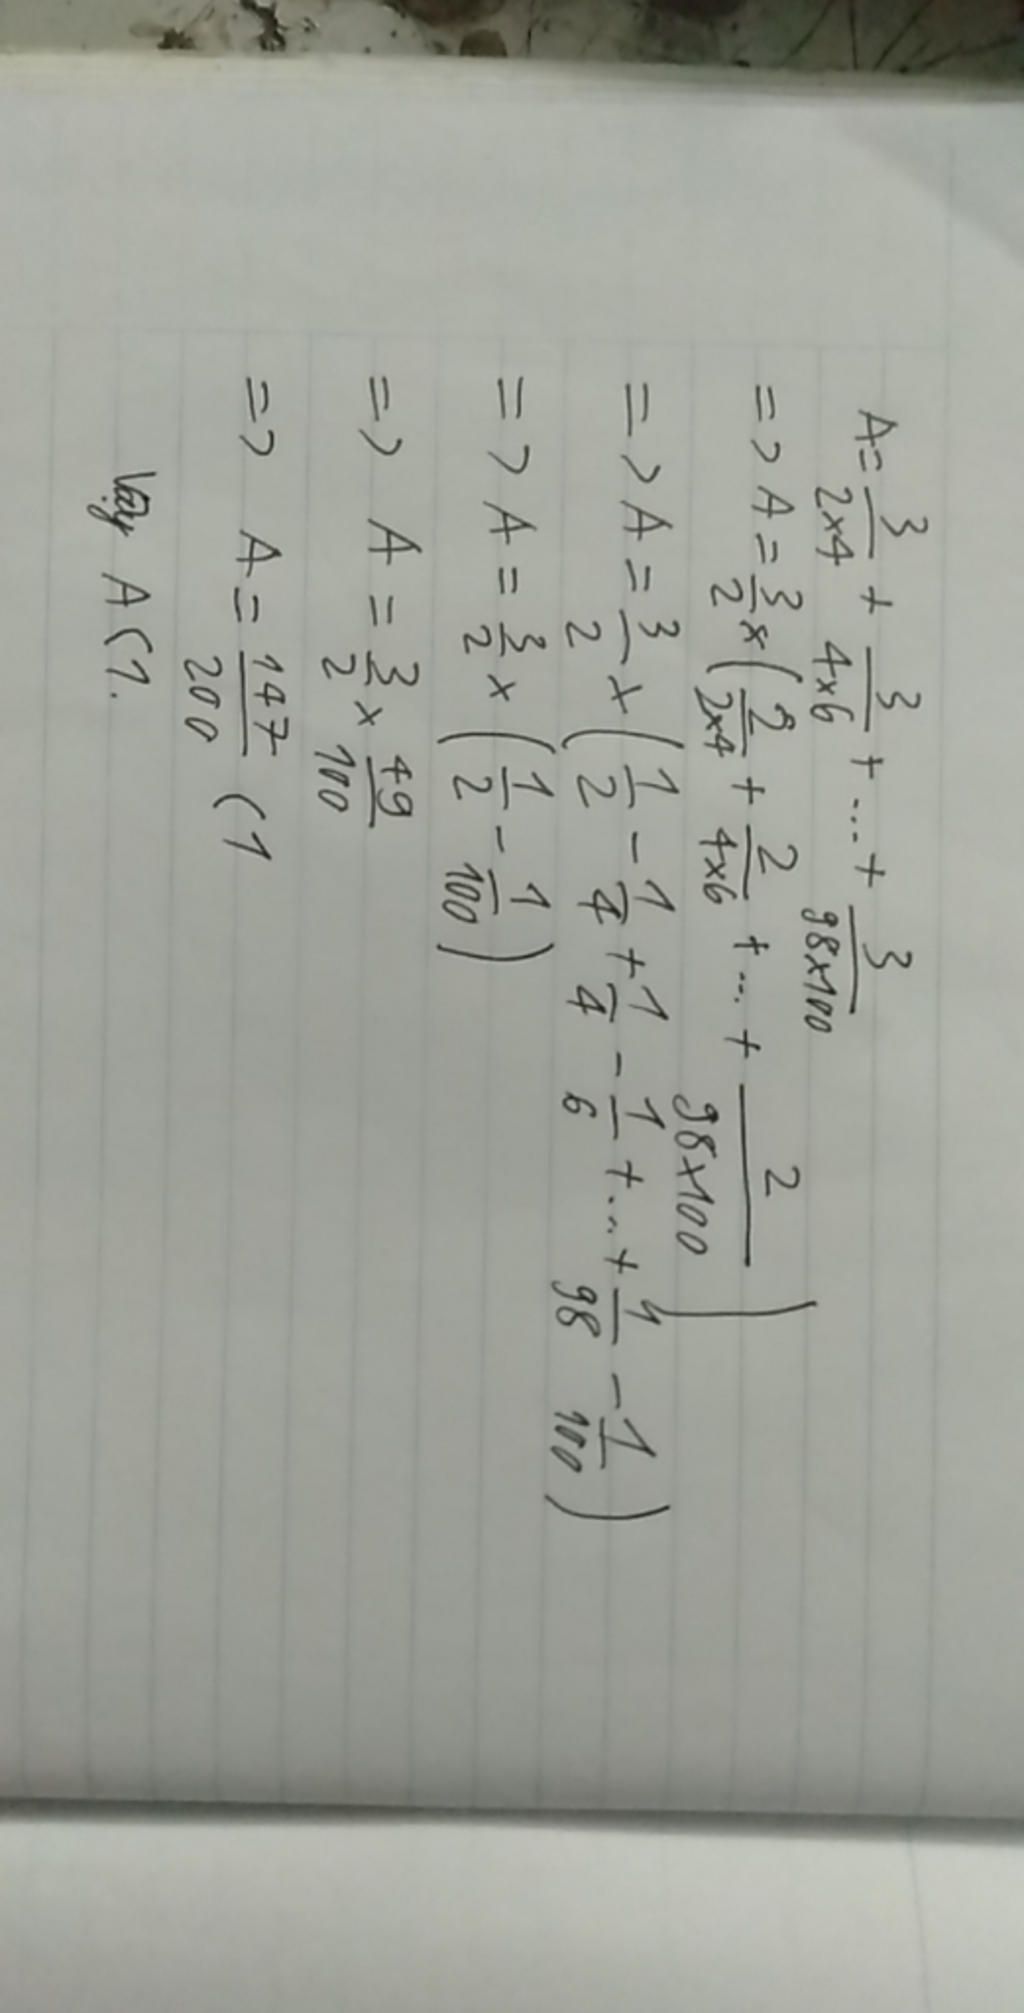 A = 3/2×4 + 3/4×6 + ... + 3/98×100
=> A = 3/2 × (2/2×4 + 2/4×6 + ... + 2/98×100)
=> A = 3/2 × (1/2 - 1/4 + 1/4 - 1/6 + ... + 1/98 - 1/100)
=> A = 3/2 × (1/2 - 1/100)
=> A = 3/2 × 49/100
=> A = 147/200 < 1
Vậy A < 1.